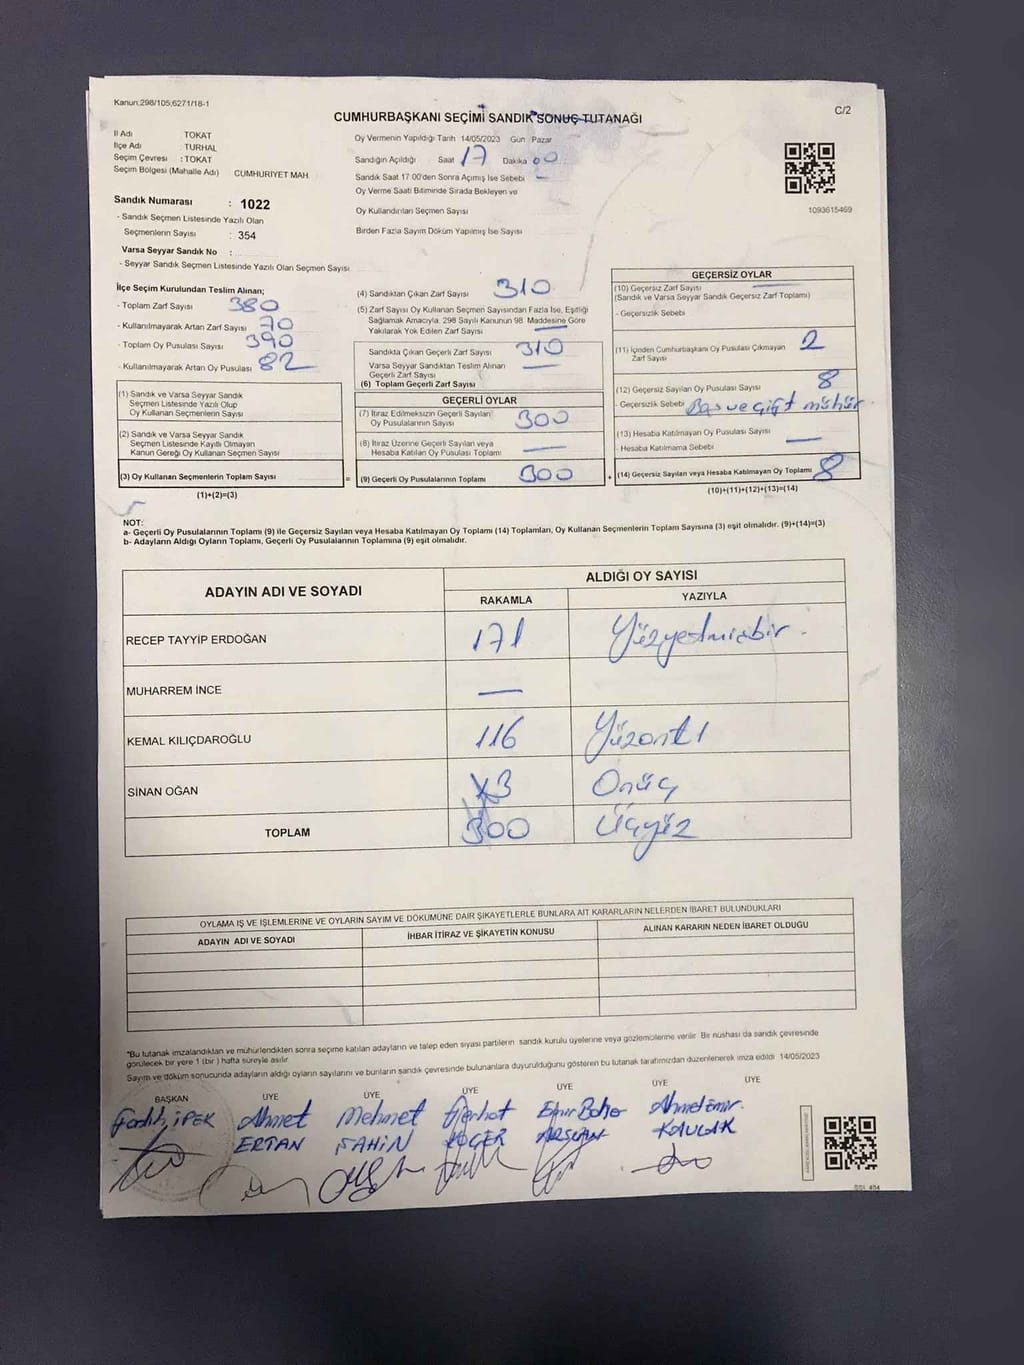 Kanun:298/105;6271/18-1
C/2
CUMHURBAŞKANI SEÇİMİ SANDIK SONUÇ TUTANAĞI
İl Adı TOKAT
İlçe Adı TURHAL
Seçim Çevresi : TOKAT
Seçim Bölgesi (Mahalle Adı) CUMHURİYET MAH.
Oy Vermenin Yapıldığı Tarih 14/05/2023 Gün Pazar
Sandığın Açıldığı Saat 17 Dakika 00
Sandık Saat 17:00'den Sonra Açımış İse Sebebi
Oy Verme Saati Bitiminde Sırada Bekleyen ve
Oy Kullandırılan Seçmen Sayısı
Birden Fazla Sayım Döküm Yapılmış İse Sayısı
1093615469
Sandık Numarası : 1022
- Sandık Seçmen Listesinde Yazılı Olan
Seçmenlerin Sayısı : 354
Varsa Seyyar Sandık No :
- Seyyar Sandık Seçmen Listesinde Yazılı Olan Seçmen Sayısı
İlçe Seçim Kurulundan Teslim Alınan;
- Toplam Zarf Sayısı 380
- Kullanılmayarak Artan Zarf Sayısı 70
- Toplam Oy Pusulası Sayısı 390
- Kullanılmayarak Artan Oy Pusulası 82
(1) Sandık ve Varsa Seyyar Sandık
Seçmen Listesinde Yazılı Olup
Oy Kullanan Seçmenlerin Sayısı
(2) Sandık ve Varsa Seyyar Sandık
Seçmen Listesinde Kayıtlı Olmayan
Kanun Gereği Oy Kullanan Seçmen Sayısı
(3) Oy Kullanan Seçmenlerin Toplam Sayısı =
(1)+(2)=(3)
(4) Sandıktan Çıkan Zarf Sayısı 310
(5) Zarf Sayısı Oy Kullanan Seçmen Sayısından Fazla İse, Eşitliği
Sağlamak Amacıyla, 298 Sayılı Kanunun 98. Maddesine Göre
Yakılarak Yok Edilen Zarf Sayısı —
Sandıkta Çıkan Geçerli Zarf Sayısı 310
Varsa Seyyar Sandıktan Teslim Alınan
Geçerli Zarf Sayısı —
(6) Toplam Geçerli Zarf Sayısı
GEÇERLİ OYLAR
(7) İtiraz Edilmeksizin Geçerli Sayılan
Oy Pusulalarının Sayısı 300
(8) İtiraz Üzerine Geçerli Sayılan veya
Hesaba Katılan Oy Pusulası Toplamı —
(9) Geçerli Oy Pusulalarının Toplamı 300 +
GEÇERSİZ OYLAR
(10) Geçersiz Zarf Sayısı —
(Sandık ve Varsa Seyyar Sandık Geçersiz Zarf Toplamı)
- Geçersizlik Sebebi
(11) İçinden Cumhurbaşkanı Oy Pusulası Çıkmayan 2
Zarf Sayısı
(12) Geçersiz Sayılan Oy Pusulası Sayısı 8
- Geçersizlik Sebebi Boş ve çift mühür
(13) Hesaba Katılmayan Oy Pusulası Sayısı
- Hesaba Katılmama Sebebi —
(14) Geçersiz Sayılan veya Hesaba Katılmayan Oy Toplamı 8
(10)+(11)+(12)+(13)=(14)
NOT:
a- Geçerli Oy Pusulalarının Toplamı (9) ile Geçersiz Sayılan veya Hesaba Katılmayan Oy Toplamı (14) Toplamları, Oy Kullanan Seçmenlerin Toplam Sayısına (3) eşit olmalıdır. (9)+(14)=(3)
b- Adayların Aldığı Oyların Toplamı, Geçerli Oy Pusulalarının Toplamına (9) eşit olmalıdır.
ADAYIN ADI VE SOYADI ALDIĞI OY SAYISI
RAKAMLA YAZIYLA
RECEP TAYYİP ERDOĞAN 171 Yüzyetmişbir.
MUHARREM İNCE —
KEMAL KILIÇDAROĞLU 116 Yüzonaltı
SİNAN OĞAN 13 Onüç
TOPLAM 300 Üçyüz
OYLAMA İŞ VE İŞLEMLERİNE VE OYLARIN SAYIM VE DÖKÜMÜNE DAİR ŞİKAYETLERLE BUNLARA AİT KARARLARIN NELERDEN İBARET BULUNDUKLARI
ADAYIN ADI VE SOYADI İHBAR İTİRAZ VE ŞİKAYETİN KONUSU ALINAN KARARIN NEDEN İBARET OLDUĞU
"Bu tutanak imzalandıktan ve mühürlendikten sonra seçime katılan adayların ve talep eden siyasi partilerin sandık kurulu üyelerine veya gözlemcilerine verilir. Bir nüshası da sandık çevresinde
görülecek bir yere 1 (bir) hafta süreyle asılır.
Sayım ve döküm sonucunda adayların aldığı oyların sayılarını ve bunların sandık çevresinde bulunanlara duyurulduğunu gösteren bu tutanak tarafımızdan düzenlenerek imza edildi. 14/05/2023
BAŞKAN ÜYE ÜYE ÜYE ÜYE ÜYE ÜYE
Fatih İPEK Ahmet Mehmet Ferhat Ahmet Emir.
ERTAN ŞAHİN KAVLAK